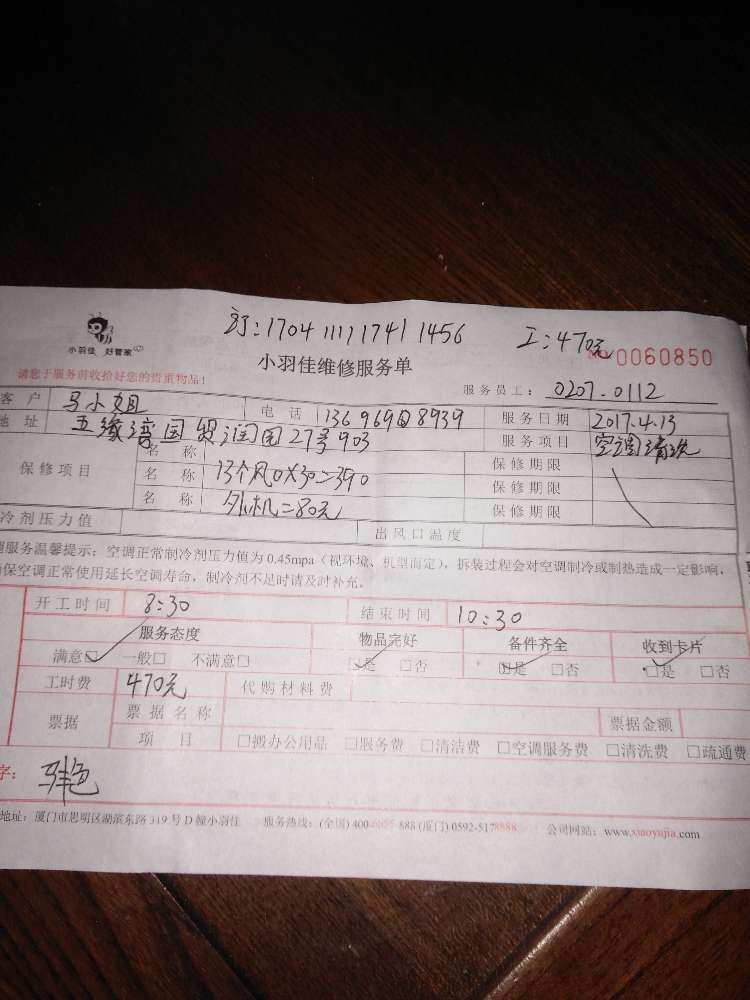 订:1704111117411456 工:470元
小羽佳 好管家
小羽佳维修服务单 0060850
请您于服务前收拾好您的贵重物品!
服务员工: 0207.0112
客户 马小姐 电话 13696908939 服务日期 2017.4.13
地址 五缘湾国贸润园27号903 服务项目 空调清洗
保修项目
名称 13个风口X30=390 保修期限
名称 外机=80元 保修期限
名称 保修期限
冷剂压力值 出风口温度
调服务温馨提示:空调正常制冷剂压力值为 0.45mpa(视环境、机型而定),拆装过程会对空调制冷或制热造成一定影响,
确保空调正常使用延长空调寿命,制冷剂不足时请及时补充。
开工时间 8:30 结束时间 10:30
服务态度 物品完好 备件齐全 收到卡片
满意□ 一般□ 不满意□ □是 □否 □是 □否 □是 □否
工时费 470元 代购材料费
票据 票据名称 票据金额
项目 □搬办公用品 □服务费 □清洁费 □空调服务费 □清洗费 □疏通费
字:
地址:厦门市思明区湖滨东路 319 号 D 幢小羽佳 服务热线:(全国) 400 888 (厦门) 0592-5178888 公司网站:www.xiaoyujia.com